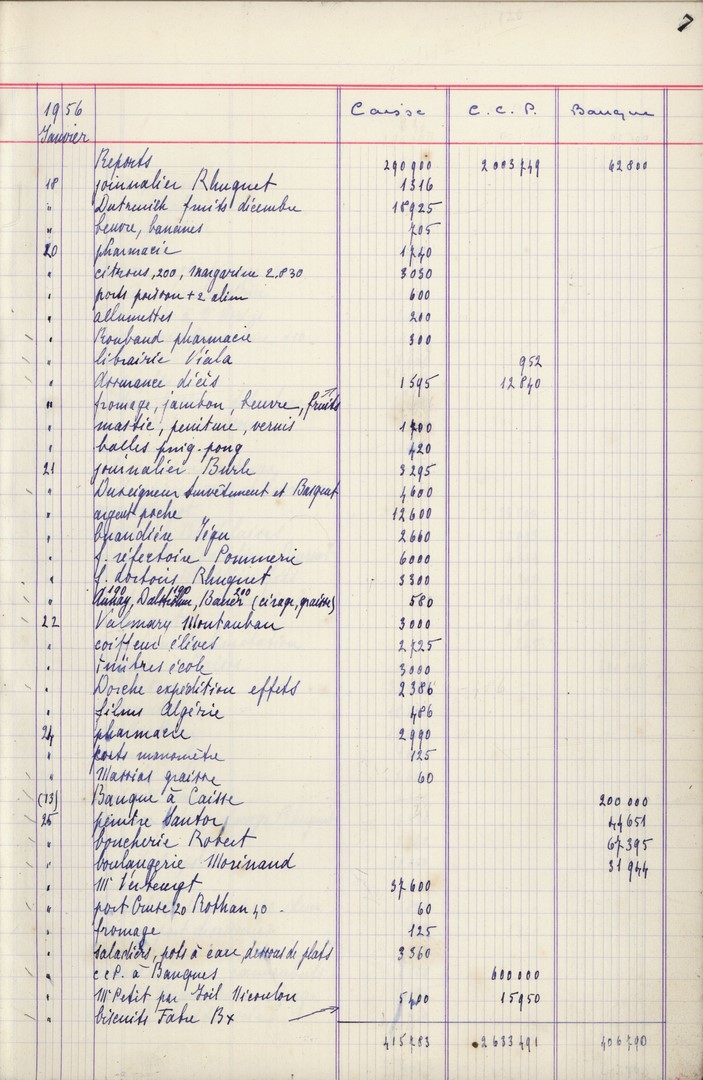 7
1956 Caisse C.C.P. Banque
Janvier
Reports 290900 2003749 62800
18 journalier Rhuguet 1316
" Dutreuich fruits décembre 18925
" beurre, bananes 705
20 pharmacie 1740
" citrons, 200, margarine 2.830 3030
" ports poisson + 2 alim 600
" allumettes 200
" Roubaud pharmacie 300
" librairie Viala 952
" assurance décès 1595 12840
" fromage, jambon, beurre, fruits
" mastic, peinture, vernis 1700
" balles ping-pong 420
21 journalier Burle 3295
" Duseigneur survêtement et Basquet 4600
" argent poche 12600
" buandière Tégu 2660
" f. réfectoire Pommerie 6000
" f. dortoirs Rhuguet 3300
" 190 190 200
(cirage, graisse) 580
22 Valmary Montauban 3000
" coiffeur élèves 2725
" timbres école 3000
" Dorche expédition effets 2386
" films Algérie 486
24 pharmacie 2990
" ports manomètre 125
" Massias graisse 60
(13) Banque à Caisse 200 000
25 peintre Santor 44651
" boucherie Robert 67395
" boulangerie Morinaud 31944
" Mr 37600
" port 20 Rothan 40 - 60
" fromage 125
" saladiers, pots à eau, dessous de plats 3360
" CCP. à Banques 600000
" Mr Petit par Joil Nicoulon 5400 15950
" biscuits Fabre Bx
415783 2633491 406790